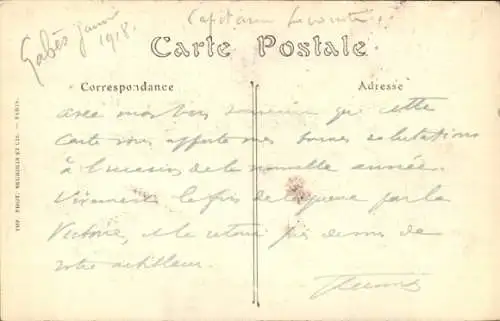 Gabès Janvier 1918.
Capitaine Lecomte
Carte Postale
Correspondance
Adresse
avec mon bon souvenir que cette
carte vous apporte mes bonnes salutations
à l'occasion de la nouvelle année.
Vivement la fin de la guerre par la
Victoire, et le retour près de nous de
votre artilleur.
TYP. PHOT. NEURDEIN ET CIE. — PARIS.